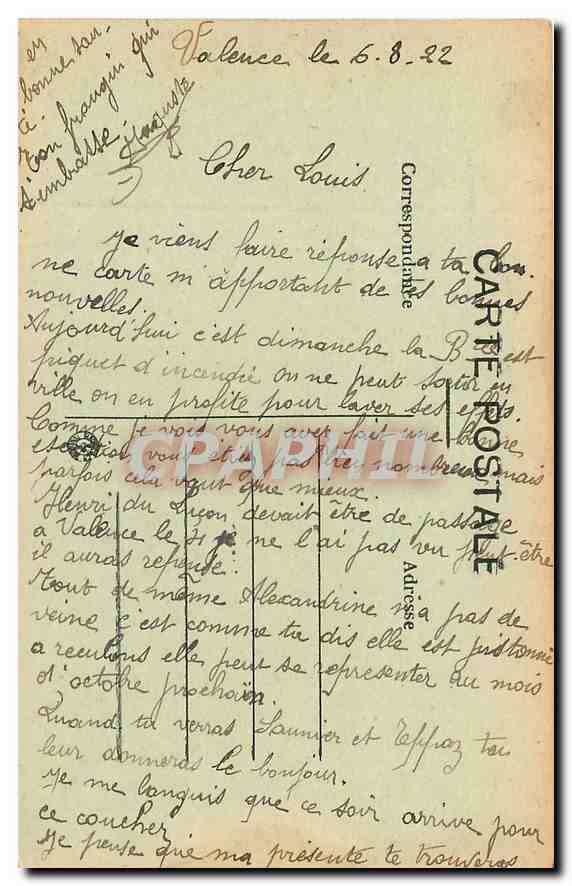 Valence le 6.8.22
Cher Louis
Je viens faire réponse a ta bon
ne carte m'apportant de bonnes
nouvelles.
Aujourd'hui c'est dimanche la Bie est
piquet d'incendie on ne peut sortir en
ville on en profite pour laver ses effets.
Comme je vois vous aver fait une bonne
vous etiez pas très nombreux mais
parfois cela vaut que mieux.
Henri du Luçon devait être de passage
a Valence le 31 je ne l'ai pas vu peut-être
il auras repensé...
Tout de même Alexandrine n'a pas de
veine c'est comme tu dis elle est pistonnée
a reculons elle peut se representer au mois
d'octobre prochain.
Quand tu verras Saunier et Teppaz tu
leur donneras le bonjour.
Je me languis que ce soir arrive pour
ce coucher
Je pense que ma présente te trouveras
en
bonne san-
té.
ton frangin qui
t'embrasse.
Auguste
CARTE POSTALE
Correspondance
Adresse
CPAPHIL